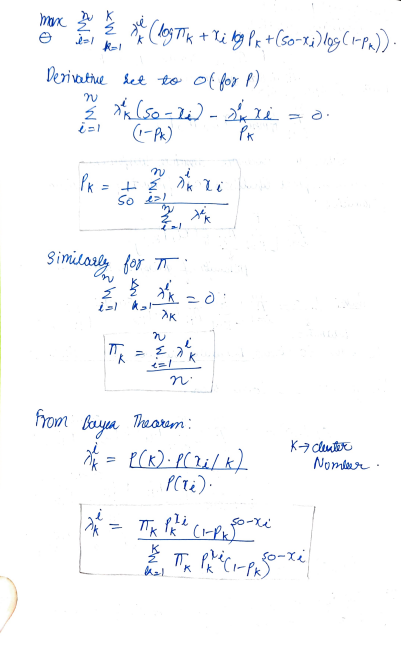 max_θ Σ_{i=1}^{n} Σ_{k=1}^{K} λ_k^i (log π_k + x_i log P_k + (50-x_i) log(1-P_k)).
Derivative set to 0 (for P)
Σ_{i=1}^{n} λ_k^i (50-x_i) / (1-P_k) - λ_k^i x_i / P_k = 0.
P_k = 1/50 Σ_{i=1}^{n} λ_k^i x_i / Σ_{i=1}^{n} λ_k^i
Similarly for π.
Σ_{i=1}^{n} Σ_{k=1}^{K} λ_k^i / λ_k = 0.
π_k = Σ_{i=1}^{n} λ_k^i / n.
From Bayes Theorem:
λ_k^i = P(k). P(x_i/k) / P(x_i). K → cluster Number.
λ_k^i = π_k P_k^{x_i} (1-P_k)^{50-x_i} / Σ_{k=1}^{K} π_k P_k^{x_i} (1-P_k)^{50-x_i}